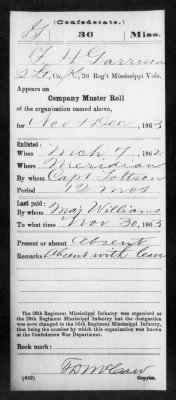 (Confederate.)
G 36 Miss.
F H Garrison
2 Lt, Co. K, 36 Reg't Mississippi Vols.
Appears on
Company Muster Roll
of the organization named above,
for Nov & Dec, 1863
Enlisted:
When Mch 7, 1862
Where Meridian
By whom Capt
Period 12 mos
Last paid:
By whom Maj Williams
To what time Nov 30, 1863
Present or absent Absent
Remarks: Absent with leave
The 36th Regiment Mississippi Infantry was organized
as the
Regiment Mississippi Infantry but the designation
was
changed to the 36th Regiment Mississippi Infantry,
that being the number by which this organization was known
at the Confederate War Department.
Book mark:
(642)
Copyist.